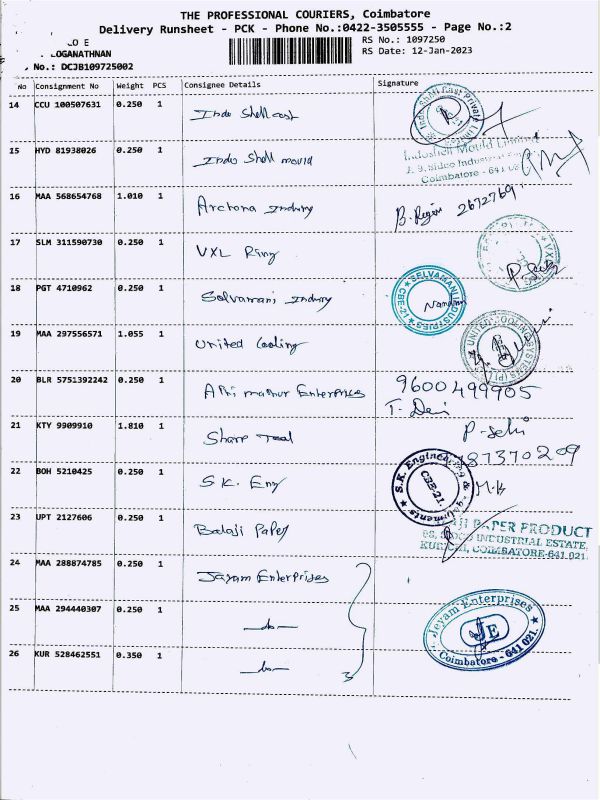 THE PROFESSIONAL COURIERS, Coimbatore
Delivery Runsheet - PCK - Phone No.:0422-3505555 - Page No.:2
RS No.: 1097250
RS Date: 12-Jan-2023
LO E
LOGANATHNAN
No.: DCJB109725002
No Consignment No Weight PCS Consignee Details Signature
14 CCU 100507631 0.250 1 Indo Shell cast
15 HYD 81938026 0.250 1 Indo Shell mould
Indoshell Mould Limited
Coimbatore - 641 021
16 MAA 568654768 1.010 1 Archana Industry
B. 2672769
17 SLM 311590730 0.250 1 VXL Ring
18 PGT 4710962 0.250 1 Selvamani Industry
SELVAMANI INDUSTRIES
CBE-21
19 MAA 297556571 1.055 1 United Cooling
UNITED COOLING SYSTEMS (P) L
20 BLR 5751392242 0.250 1 Enterprises
9600499905
T. Devi
21 KTY 9909910 1.810 1 Sharp Tool
P-Selvi
22 BOH 5210425 0.250 1 S.K. Eng
S.K. Engineering &
CBE-21.
23 UPT 2127606 0.250 1 Balaji Paper
PAPER PRODUCT
SIDCO INDUSTRIAL ESTATE,
KURICHI, COIMBATORE-641 021.
24 MAA 288874785 0.250 1 Jayam Enterprises
25 MAA 294440307 0.250 1 —do—
Jeyam Enterprises
JE
Coimbatore - 641 021.
26 KUR 528462551 0.350 1 —do—